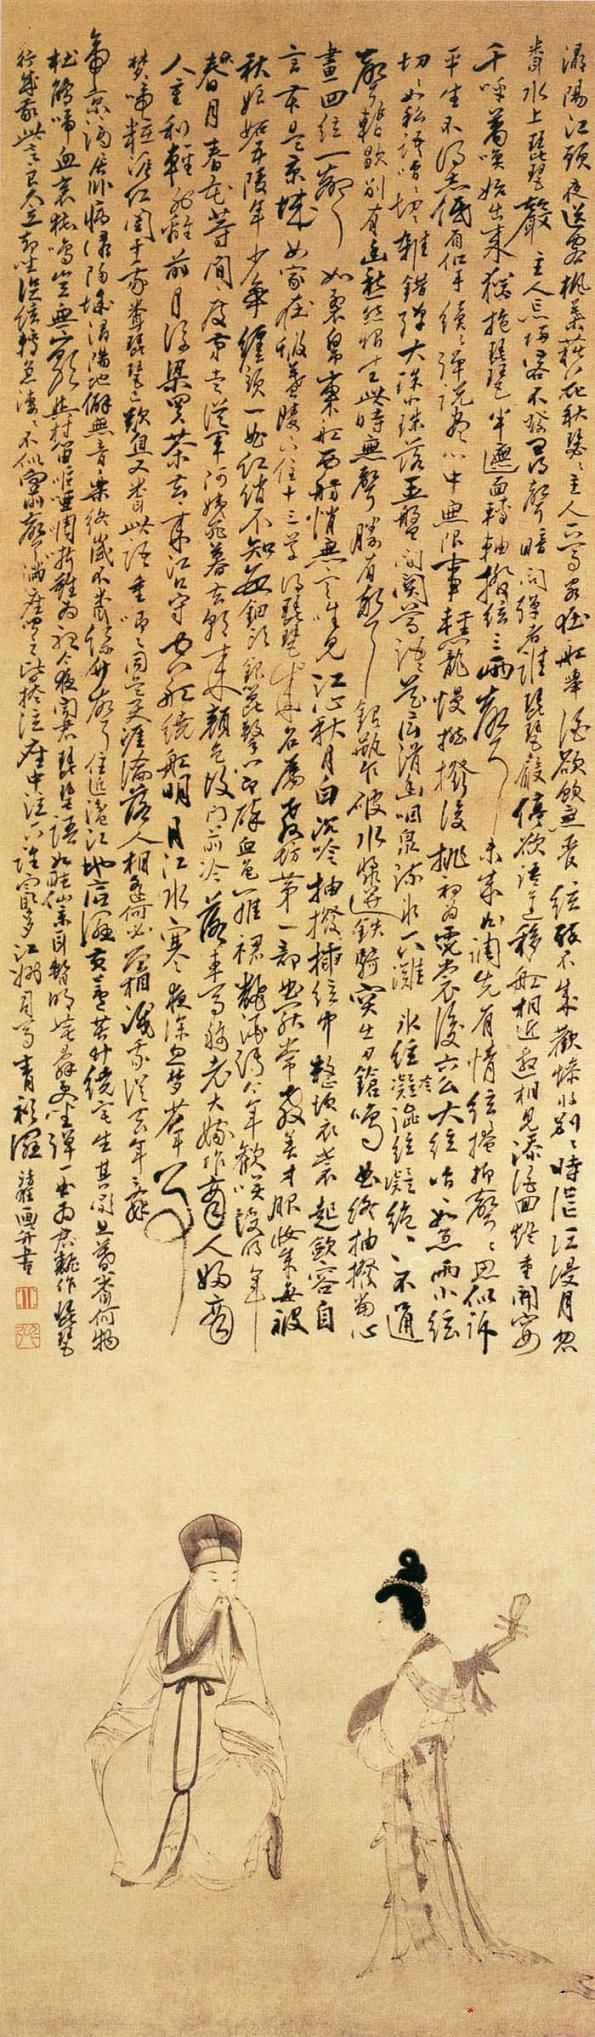 潯陽江頭夜送客楓葉荻花秋瑟〻主人下馬客在船舉酒欲飲無管絃醉不成歡慘將別〻時茫〻江浸月忽
聞水上琵琶聲主人忘歸客不發尋聲暗問彈者誰琵琶聲停欲語遲移船相近邀相見添酒回燈重開宴
千呼萬喚始出來猶抱琵琶半遮面轉軸撥絃三兩聲未成曲調先有情絃〻掩抑聲〻思似訴
平生不得志低眉信手續〻彈說盡心中無限事輕攏慢撚撥復挑初為霓裳後六幺大絃嘈〻如急雨小絃
切〻如私語嘈〻切〻雜錯彈大珠小珠落玉盤間關鶯語花底滑幽咽泉流氷下灘氷絃冷澀絃凝絕〻不通
聲暫歇別有幽愁暗恨生此時無聲勝有聲銀瓶乍破水漿迸鐵騎突出刀鎗鳴曲終抽撥當心
畫四絃一聲如裂帛東船西舫悄無言唯見江心秋月白沉吟抽撥插絃中整頓衣裳起歛容自
言本是京城女家在蝦蟇陵下住十三學得琵琶成名屬教坊第一部曲罷常教善才服妝成每被
秋娘妬五陵年少爭纏頭一曲紅綃不知數鈿頭銀篦擊節碎血色羅裙翻酒污今年歡笑復明年
春月春花等閒度弟走從軍阿姨死暮去朝來顏色故門前冷落車馬稀老大嫁作商人婦商
人重利輕別離前月浮梁買茶去去來江口守空船繞船明月江水寒夜深忽夢少年事
夢啼粧淚紅闌干我聞琵琶已歎息又聞此語重唧〻同是天涯淪落人相逢何必曾相識我從去年辭
帝京謫居臥病潯陽城潯陽地僻無音樂終歲不聞絲竹聲住近湓江地低濕黃蘆苦竹繞宅生其間旦暮聞何物
杜鵑啼血哀猿鳴豈無山歌與村笛嘔啞啁哳難為聽今夜聞君琵琶語如聽仙樂耳暫明莫辭更坐彈一曲為君翻作琵琶
行感我此言良久立却坐促絃轉急淒〻不似向前聲滿座聞之皆掩泣座中泣下誰最多江州司馬青衫濕 清狂畫并書